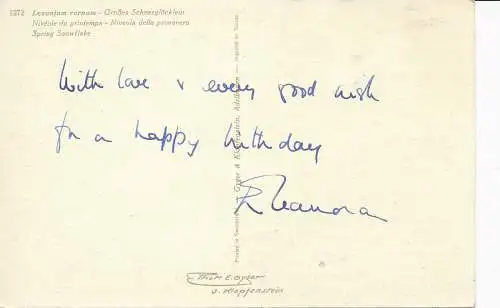 1272 Leucojum vernum – Großes Schneeglöcklein
Nivéole du printemps – Nivevla della primavera
Spring Snowflake
With love & every good wish
for a happy birthday
Eleanora
Printed in Switzerland – Gyger & Klopfenstein, Adelboden – Imprimé en Suisse
Phot. E. Gyger
A. Klopfenstein